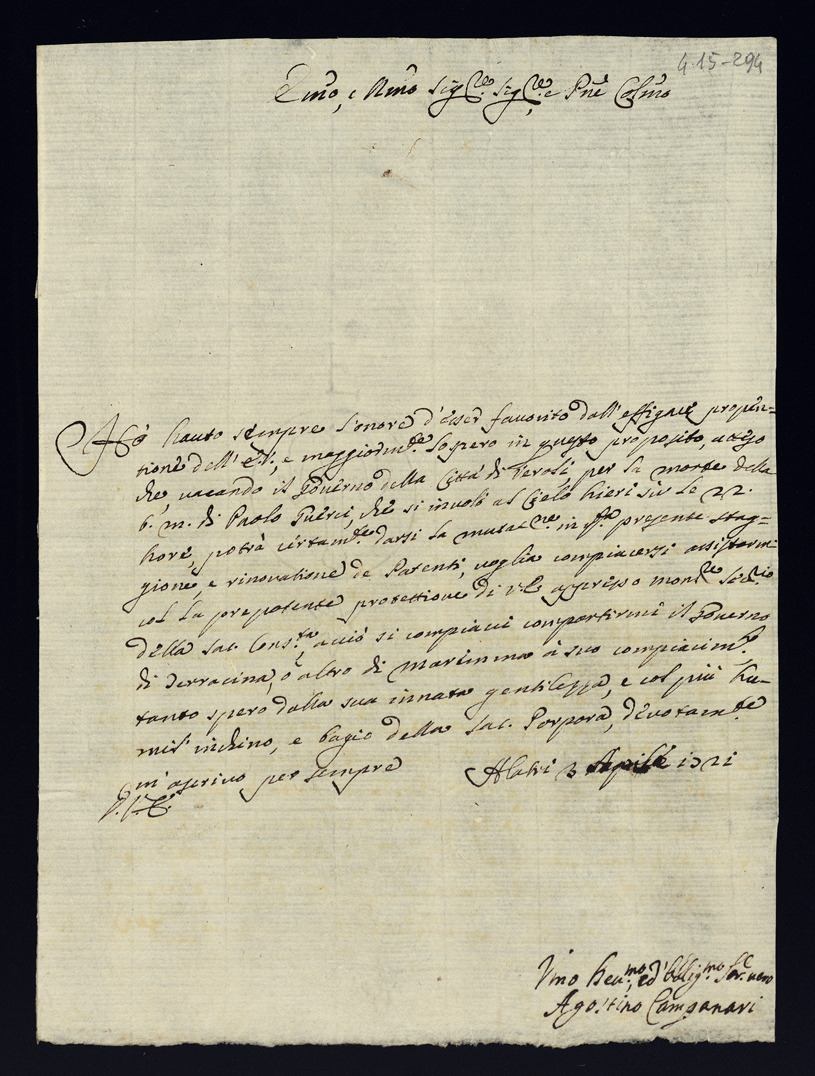 4.15-294
Emo, e Rmo Sig.re Sig.re e Pne Colmo
Hò hauto sempre l'onore d'esser favorito dall'effigaci propen=
tione dell'E.V., e maggiorm.te lo spero in questo proposito, atteso
che, vacando il Governo della Città di Veroli per la morte della
b. m. di Paolo Guerci, che si involò al Cielo hieri sù le 22.
hore, potrà certam.te darsi la mutat.ne in q.ta presente stag=
gione, e rinovatione de Patenti, voglia compiacersi assistermi
col la prepotente protettione di V.E. appresso mons.re Seg.rio
della Sac. Cons.ta, acciò si compiacci compartirmi il Governo
di Terracina, ò altro di marimma à suo compiacim.to
tanto spero dalla sua innata gentilezza, e col più hu=
mil' inchino, e bagio della Sac. Porpora, devotam.te
m'ascrivo per sempre
D. V. E. Alatri 3 Aprile 1721
Vmo Dev.mo, ed Oblig.mo Ser. vero
Agostino Campanari